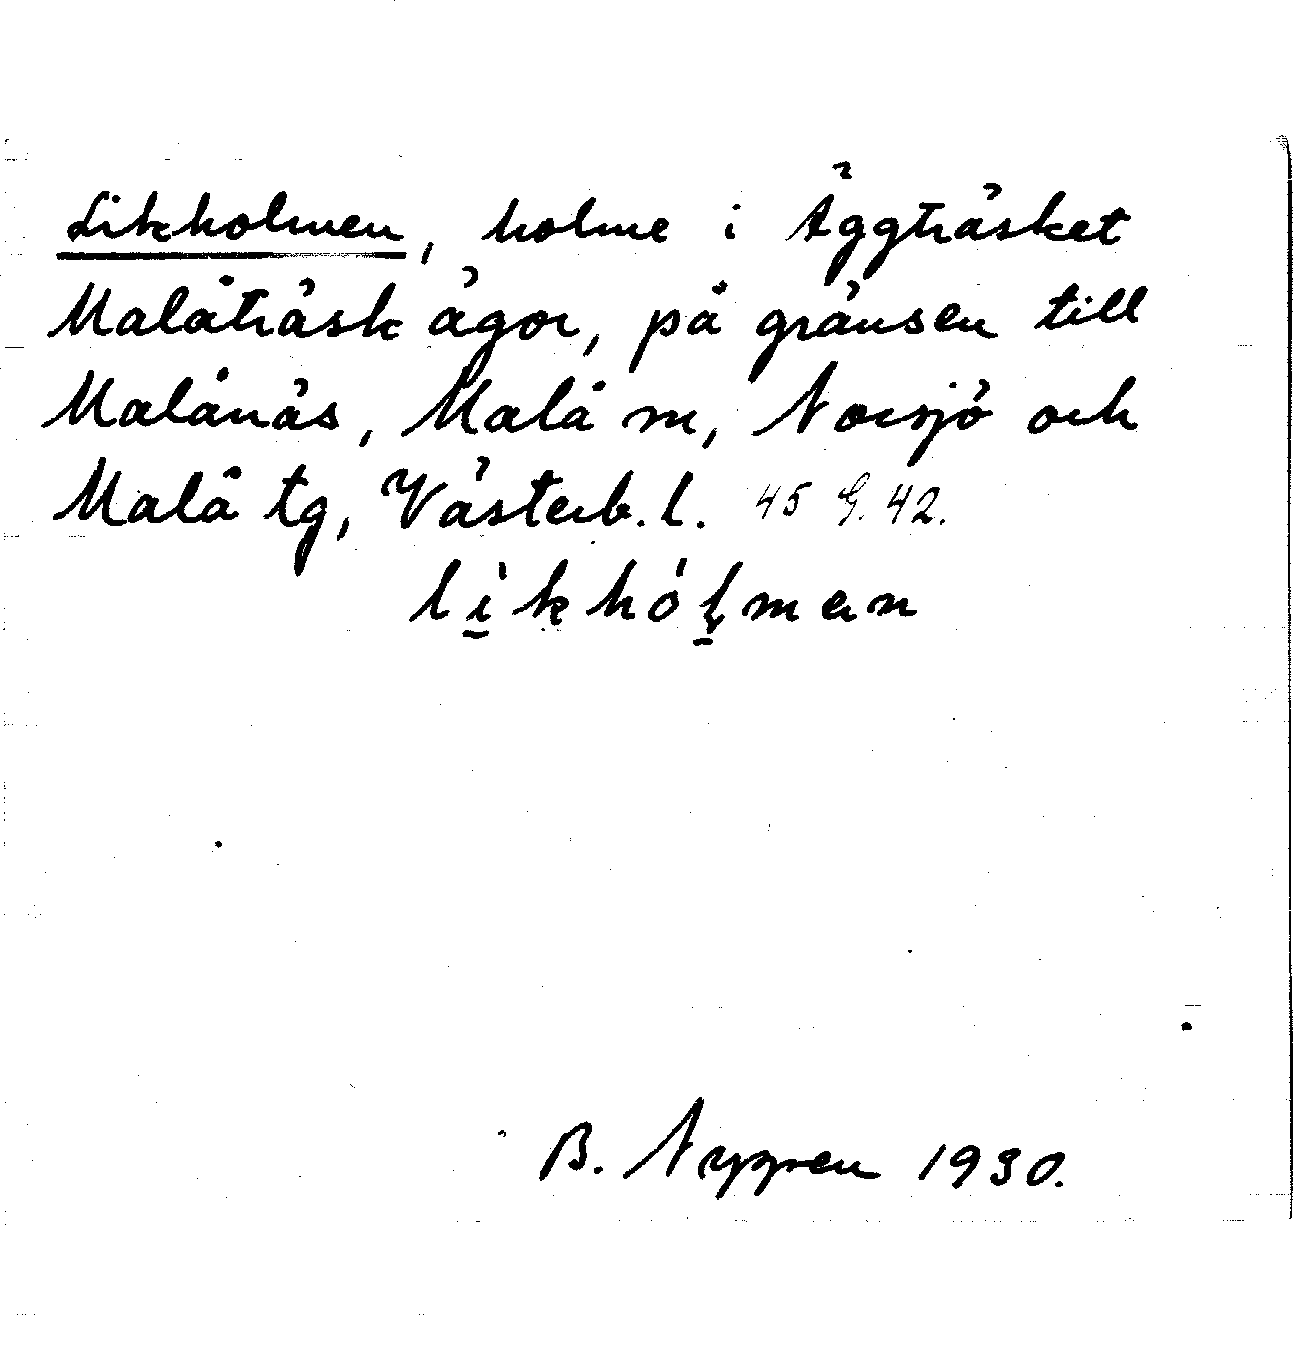 Likholmen, holme i Äggträsket
Malåträsk ägor, på gränsen till
Malånäs, Malå sn, Norsjö och
Malå tg, Västerb. l. 45 G. 42.
li̠khó̀l̠man
B. Nygren 1930.